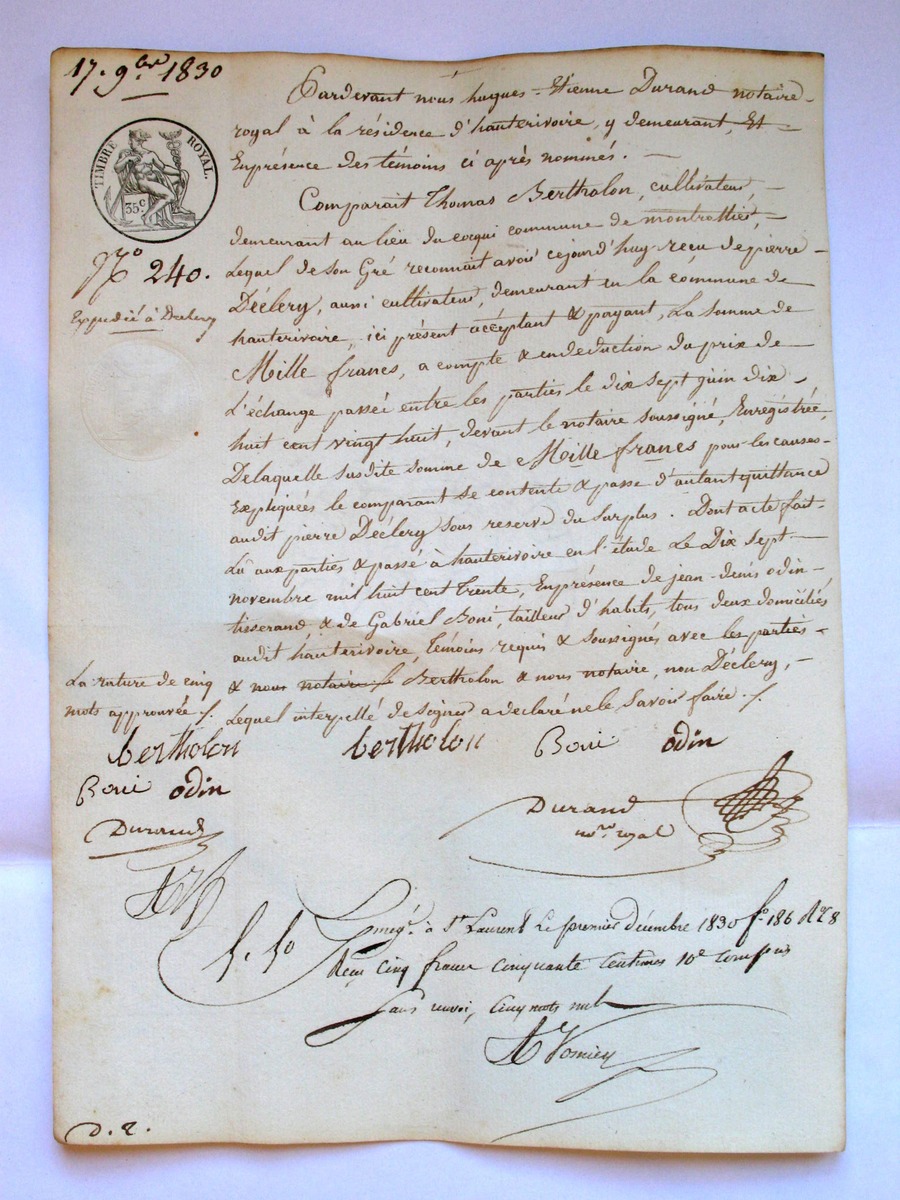 17. 9bre 1830
TIMBRE ROYAL.
35 c
N° 240.
Expédié à Déclery
Pardevant nous hugues-Etienne Durand notaire
royal à la résidence d'hauterivoire, y demeurant, Et
Enprésence des témoins ci après nommés. —
Comparait Thomas Bertholon, cultivateur, —
demeurant au lieu du commune de montrottier, —
Lequel de son Gré reconnait avoir cejourd'huy reçu de pierre —
Déclery, aussi cultivateur, demeurant en la commune de
hauterivoire, ici présent acceptant & payant, La somme de
Mille francs, a compte & endeduction du prix de
L'échange passée entre les parties le dix sept juin dix —
huit cent vingt huit, devant le notaire soussigné, Enregistrée,
Delaquelle susdite somme de Mille francs pour les causes
Expliquées le comparant se contente & passe d'autant quittance
audit pierre Déclery sous reserve du surplus. Dont acte fait
Lu aux parties & passé à hauterivoire en l'étude Le Dix sept —
novembre mil huit cent trente, Enprésence de jean-denis odin —
tisserand, & de Gabriel Boni, tailleur d'habits, tous deux domiciliés
audit hauterivoire, témoins requis & soussignés avec les parties
& nous notaire Bertholon & nous notaire, non Déclery, —
Lequel interpellé de signer a declaré ne le savoir faire. /.
La rature de cinq
mots approuvée /.
bertholon bertholon Boni odin
Boni odin
Durand
Durand
no.re royal
Enregé. à St Laurent Le premier décembre 1830 f° 186
Reçu cinq francs cinquante centimes 10e compris
sans renvoi, cinq mots nuls
D. 2.